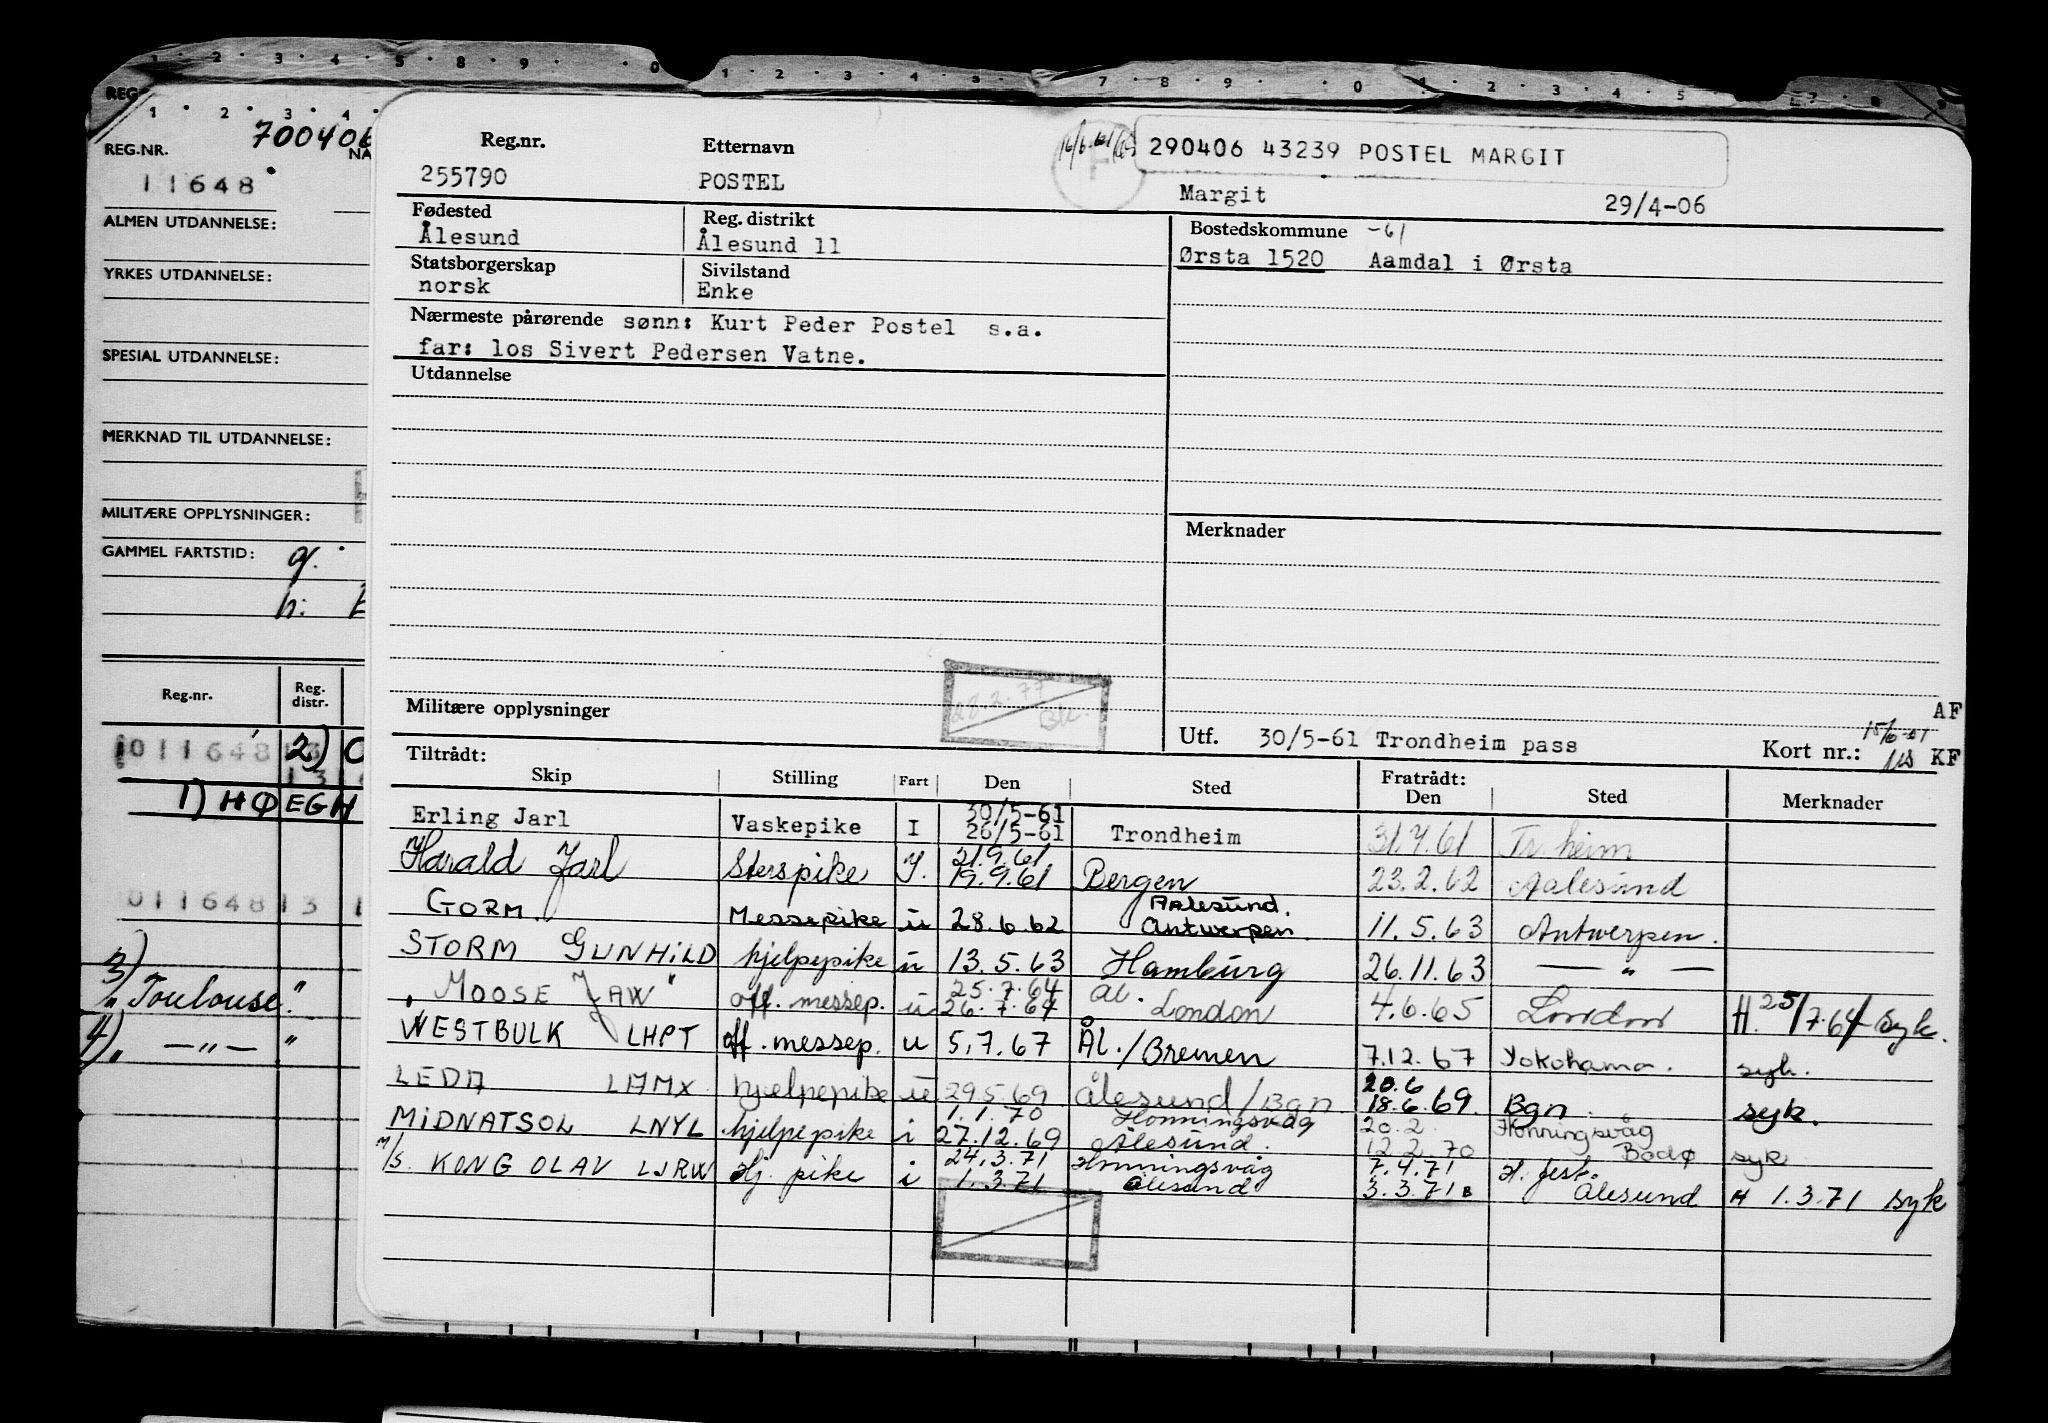 REG
1 · 2 · 3 · 4 · 5 · 8 · 9 · · 0 · 1 · 2 · 3 · 4 · 5 · · 7 · 8 · 9 · · 0 · 1 · 2 · 3 · 4 · 5 · 7 · 8 · 9
1 · 2 · 3 · 4
700406
REG.NR. NA
11648
ALMEN UTDANNELSE:
YRKES UTDANNELSE:
SPESIAL UTDANNELSE:
MERKNAD TIL UTDANNELSE:
MILITÆRE OPPLYSNINGER:
GAMMEL FARTSTID: g.
h.
Reg.nr. Reg. distr.
011648 13 2) O
13
1) HØEGH
011648 13 1
3)
" Toulouse "
4) " — " — "
Reg.nr. Etternavn 16/6-61
290406 43239 POSTEL MARGIT
255790 POSTEL Margit 29/4-06
Fødested Reg. distrikt Bostedskommune -61
Ålesund Ålesund 11 Ørsta 1520 Aamdal i Ørsta
Statsborgerskap Sivilstand
norsk Enke
Nærmeste pårørende sønn: Kurt Peder Postel s.a.
far: los Sivert Pedersen Vatne.
Utdannelse
Merknader
28.2.77
Bk.
Militære opplysninger
AF
Utf. 30/5-61 Trondheim pass Kort nr.: 15/6-61 KF
Tiltrådt: Fratrådt:
Skip Stilling Fart Den Sted Den Sted Merknader
30/5-61
Erling Jarl Vaskepike I 26/5-61 Trondheim 31.7.61 Tr.heim
21.9.61
Harald Jarl Sterspike I. 19.9.61 Bergen 23.2.62 Aalesund
Aalesund.
GORM Messepike u 28.6.62 Antwerpen. 11.5.63 Antwerpen.
STORM GUNHILD hjelpepike u 13.5.63 Hamburg 26.11.63 — " —
25.7.64 Ål.
"MOOSE JAW" off. messep. u 26.7.64 London 4.6.65 London H. 25/7.64 syk.
WESTBULK LHPT off. messep. u 5.7.67 Ål./Bremen 7.12.67 Yokohama. syk.
20.6
LEDA LAMX hjelpepike u 29.5.69 Ålesund/Bgn 18.6.69. Bgn. syk.
1.1.70 Honningsvåg 20.2 Honningsvåg
MIDNATSOL LNYL hjelpepike i 27.12.69 Ålesund. 12.2.70 Bodø syk
24.3.71 Honningsvåg 7.4.71 H. fest.
M/S. KONG OLAV LJRW Hj. pike i 1.3.71 Ålesund 3.3.71 B Ålesund H 1.3.71 syk